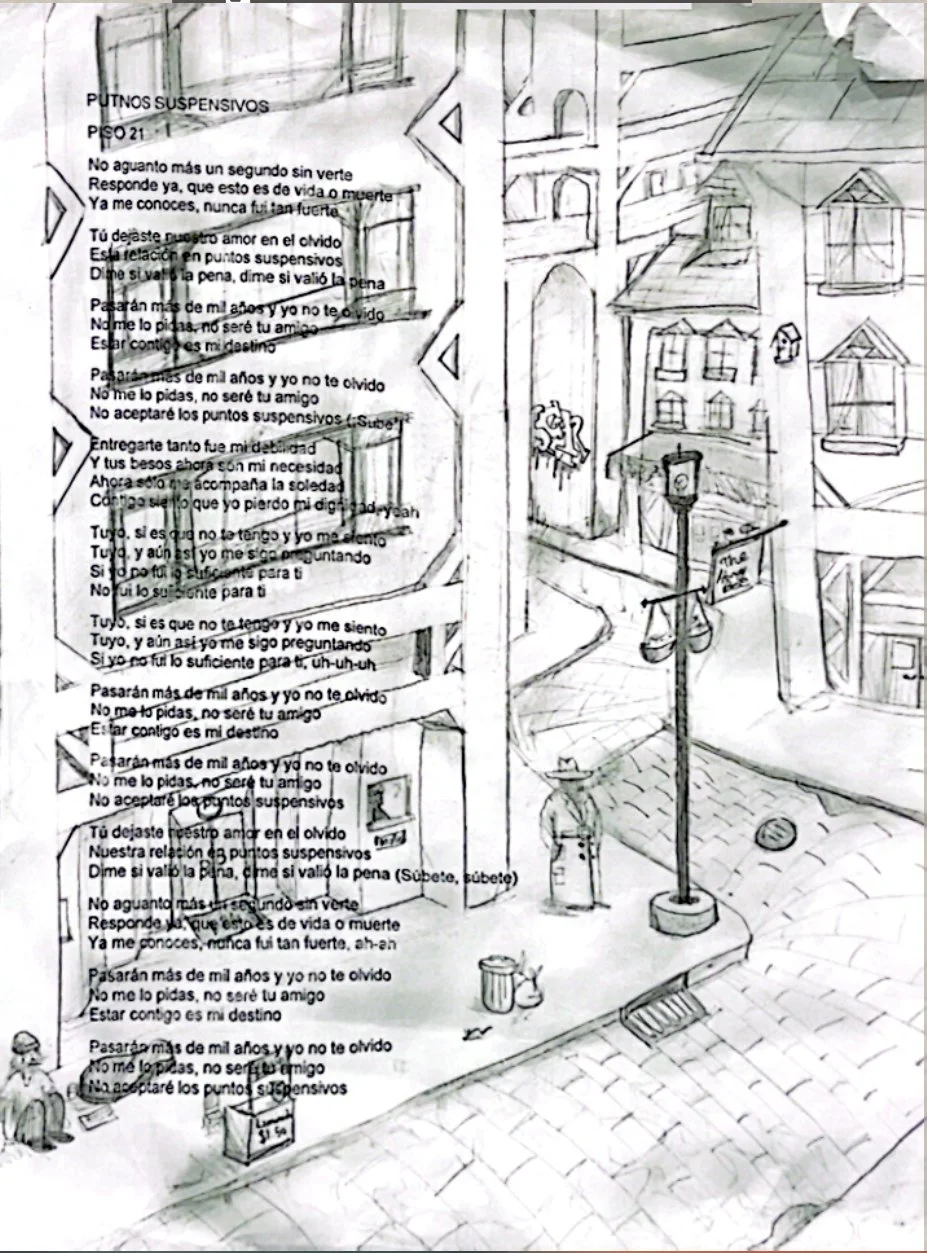 PUTNOS SUSPENSIVOS
PISO 21
No aguanto más un segundo sin verte
Responde ya, que esto es de vida o muerte
Ya me conoces, nunca fui tan fuerte
Tú dejaste nuestro amor en el olvido
Esta relación en puntos suspensivos
Dime si valió la pena, dime si valió la pena
Pasarán más de mil años y yo no te olvido
No me lo pidas, no seré tu amigo
Estar contigo es mi destino
Pasarán más de mil años y yo no te olvido
No me lo pidas, no seré tu amigo
No aceptaré los puntos suspensivos (¡Sube!)
Entregarte tanto fue mi debilidad
Y tus besos ahora son mi necesidad
Ahora sólo me acompaña la soledad
Contigo siento que yo pierdo mi dignidad, yeah
Tuyo, si es que no te tengo y yo me siento
Tuyo, y aún así yo me sigo preguntando
Si yo no fui lo suficiente para ti
No fui lo suficiente para ti
Tuyo, si es que no te tengo y yo me siento
Tuyo, y aún así yo me sigo preguntando
Si yo no fui lo suficiente para ti, uh-uh-uh
Pasarán más de mil años y yo no te olvido
No me lo pidas, no seré tu amigo
Estar contigo es mi destino
Pasarán más de mil años y yo no te olvido
No me lo pidas, no seré tu amigo
No aceptaré los puntos suspensivos
Tú dejaste nuestro amor en el olvido
Nuestra relación en puntos suspensivos
Dime si valió la pena, dime si valió la pena (Súbete, súbete)
No aguanto más un segundo sin verte
Responde ya, que esto es de vida o muerte
Ya me conoces, nunca fui tan fuerte, ah-ah
Pasarán más de mil años y yo no te olvido
No me lo pidas, no seré tu amigo
Estar contigo es mi destino
Pasarán más de mil años y yo no te olvido
No me lo pidas, no seré tu amigo
No aceptaré los puntos suspensivos
The
$1.50